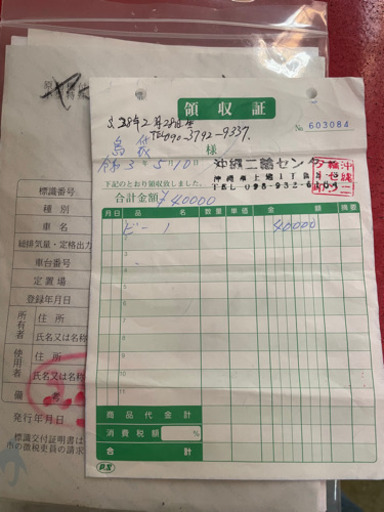 領収証
S.28年2月28日生
TEL 090-3792-9337.
島袋 様
No 603084
令和3年5月10日
沖縄二輪センター
下記のとおり領収致しました。
合計金額 ¥40000
月日 品名 数量 単価 金額 摘要
ビーノ 40000
2
3
5
6
7
8
9
10
11
商品代金計
消費税額 %
合計
標識番号
種別
車名
総排気量・定格出力
車台番号
定置場
登録年月日
所有者 住所
氏名又は名称
使用者 住所
氏名又は名称
備考
発行年月日
標識交付証明書は
市の徴税吏員の請求